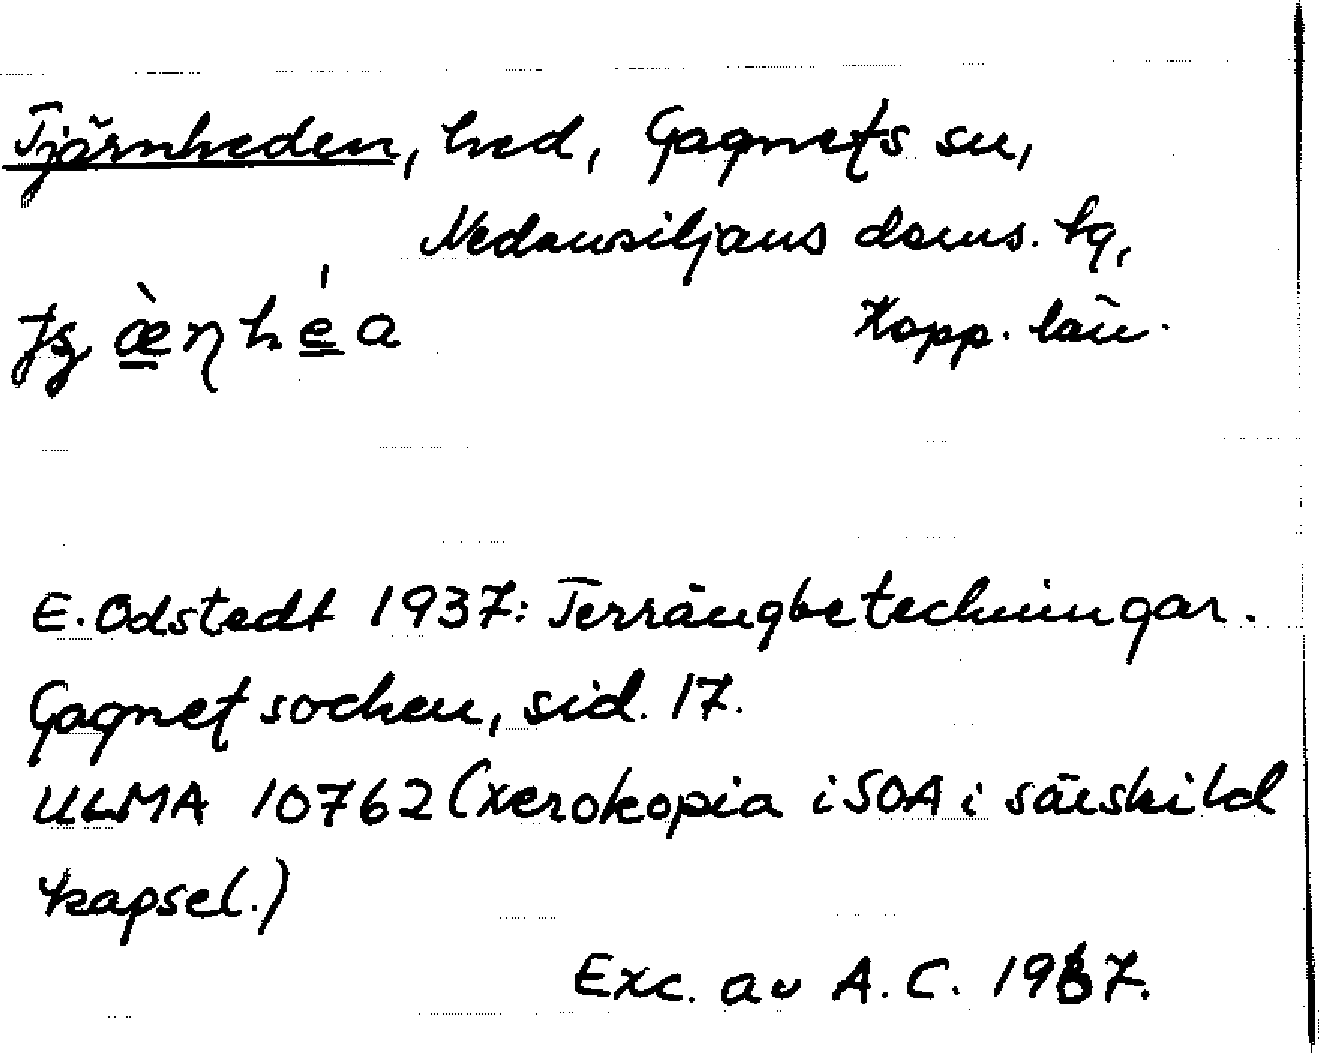 Tjärnheden, hed, Gagnefs sn,
Nedansiljans doms. tg,
Kopp. län.
E. Odstedt 1937: Terrängbeteckningar.
Gagnef socken, sid. 17.
ULMA 10762 (xerokopia i SOA i särskild
kapsel.)
Exc. av A. C. 1967.